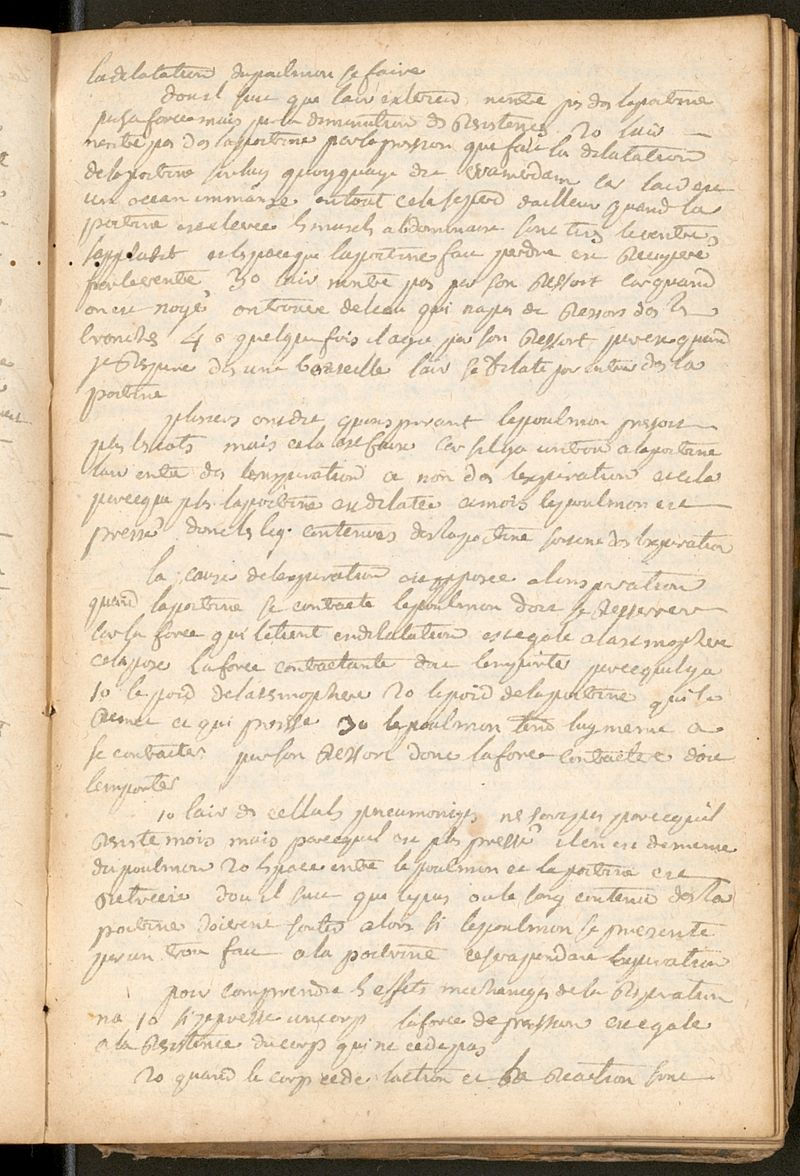 la dilatation du poulmon se faire
dou il suit que lair exterieur nentre pas dans la poitrine
par sa force mais par la diminution de Resistence 2o lair
nentre pas dans la poitrine par la pression que fait la dilatation
de la poitrine sur luy quoyquaye dit car lair est
un ocean immanse ou tout cela se perd dailleur quand la
poitrine est elevee les muscls abdominaire sont tirés le ventre
sapplatit et lespace que la poitrine fait perdre est Recuperé
par le ventre 3o lair nentre pas par son Ressort car quand
on est noyé on trouve de leau qui na pas de Ressors dans les
bronches 4o quelquefois il agit par son Ressort parce quand
je Respire dans une bouteille lair se dilate por entrer dans la
poitrine
plusiers ont dit quinspirant le poulmon pressoit
plus les cotes mais cela est faux car sil y a un trou a la poitrine
lair entre dans linspiration et non dans lexpiration et cela
parceque plus la poitrine est dilatée et mois le poulmon est
pressé donc les liq. contenues dans la poitrine sortent dans lexpiration
la cause de lexpiration est opposée a linspiration
quand la poitrine se contracte le poulmon doit se Resserrer
car la force qui le tient en dilatation est egale a latmosphere
cela posé la force contractante doit lemporter parcequil y a
1o le poid de latmosphere 2o le poid de la poitrine quil
ce qui presse 3o le poulmon tend luy meme a
se contracter par son Ressort donc la force contractee doit
lemporter
1o lair des celluls pneumoniqs ne sort pas parcequil
Resiste mois mais parcequil est plus pressé il en est de meme
du poulmon 2o lespace entre le poulmon et la poitrine est
Retrecie dou il suit que le pus ou le sang contenu dans la
poitrine doivent sortir alors si le poulmon se presente
par un trou fait a la poitrine cest pendant lexpiration
pour comprendre les effets mechaniqs de la Respiration
1o si je presse un corp la force de pression est egale
a la Resistence du corp qui ne cede pas
2o quand le corp cede laction et la Reaction sont